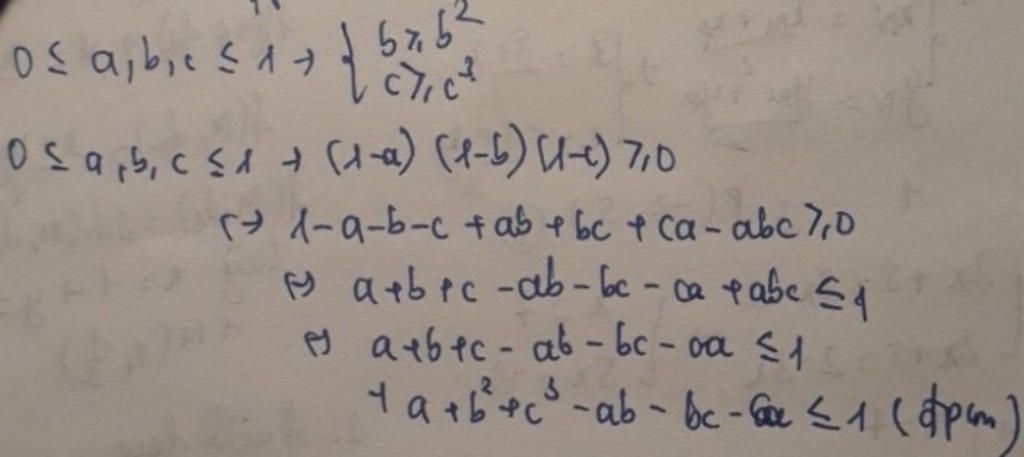 0 ≤ a, b, c ≤ 1 → { b ≥ b²
c ≥ c³
0 ≤ a, b, c ≤ 1 → (1-a) (1-b) (1-c) ≥ 0
(→ 1-a-b-c +ab +bc +ca - abc ≥ 0
(→) a+b+c -ab - bc - ca +abc ≤ 1
(→) a+b+c - ab - bc - ca ≤ 1
→ a+b²+c³ -ab - bc - ca ≤ 1 (đpcm)